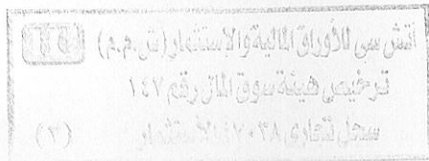 اتش سى للأوراق المالية والإستثمار (ش.م.م)
ترخيص هيئة سوق المال رقم ١٤٧
سجل تجارى الاستثمار (٢)